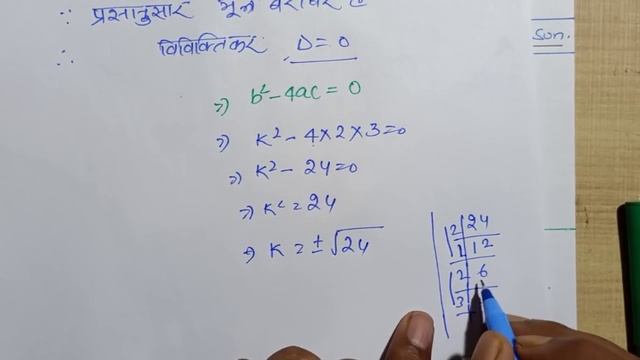 ∵ प्रश्नानुसार मूल बराबर है
Sun.
∴ विविक्तिकर D = 0
⇒ b² - 4ac = 0
⇒ K² - 4×2×3 = 0
⇒ K² - 24 = 0
⇒ K² = 24
⇒ K = ± √24
2 | 24
2 | 12
2 | 6
3